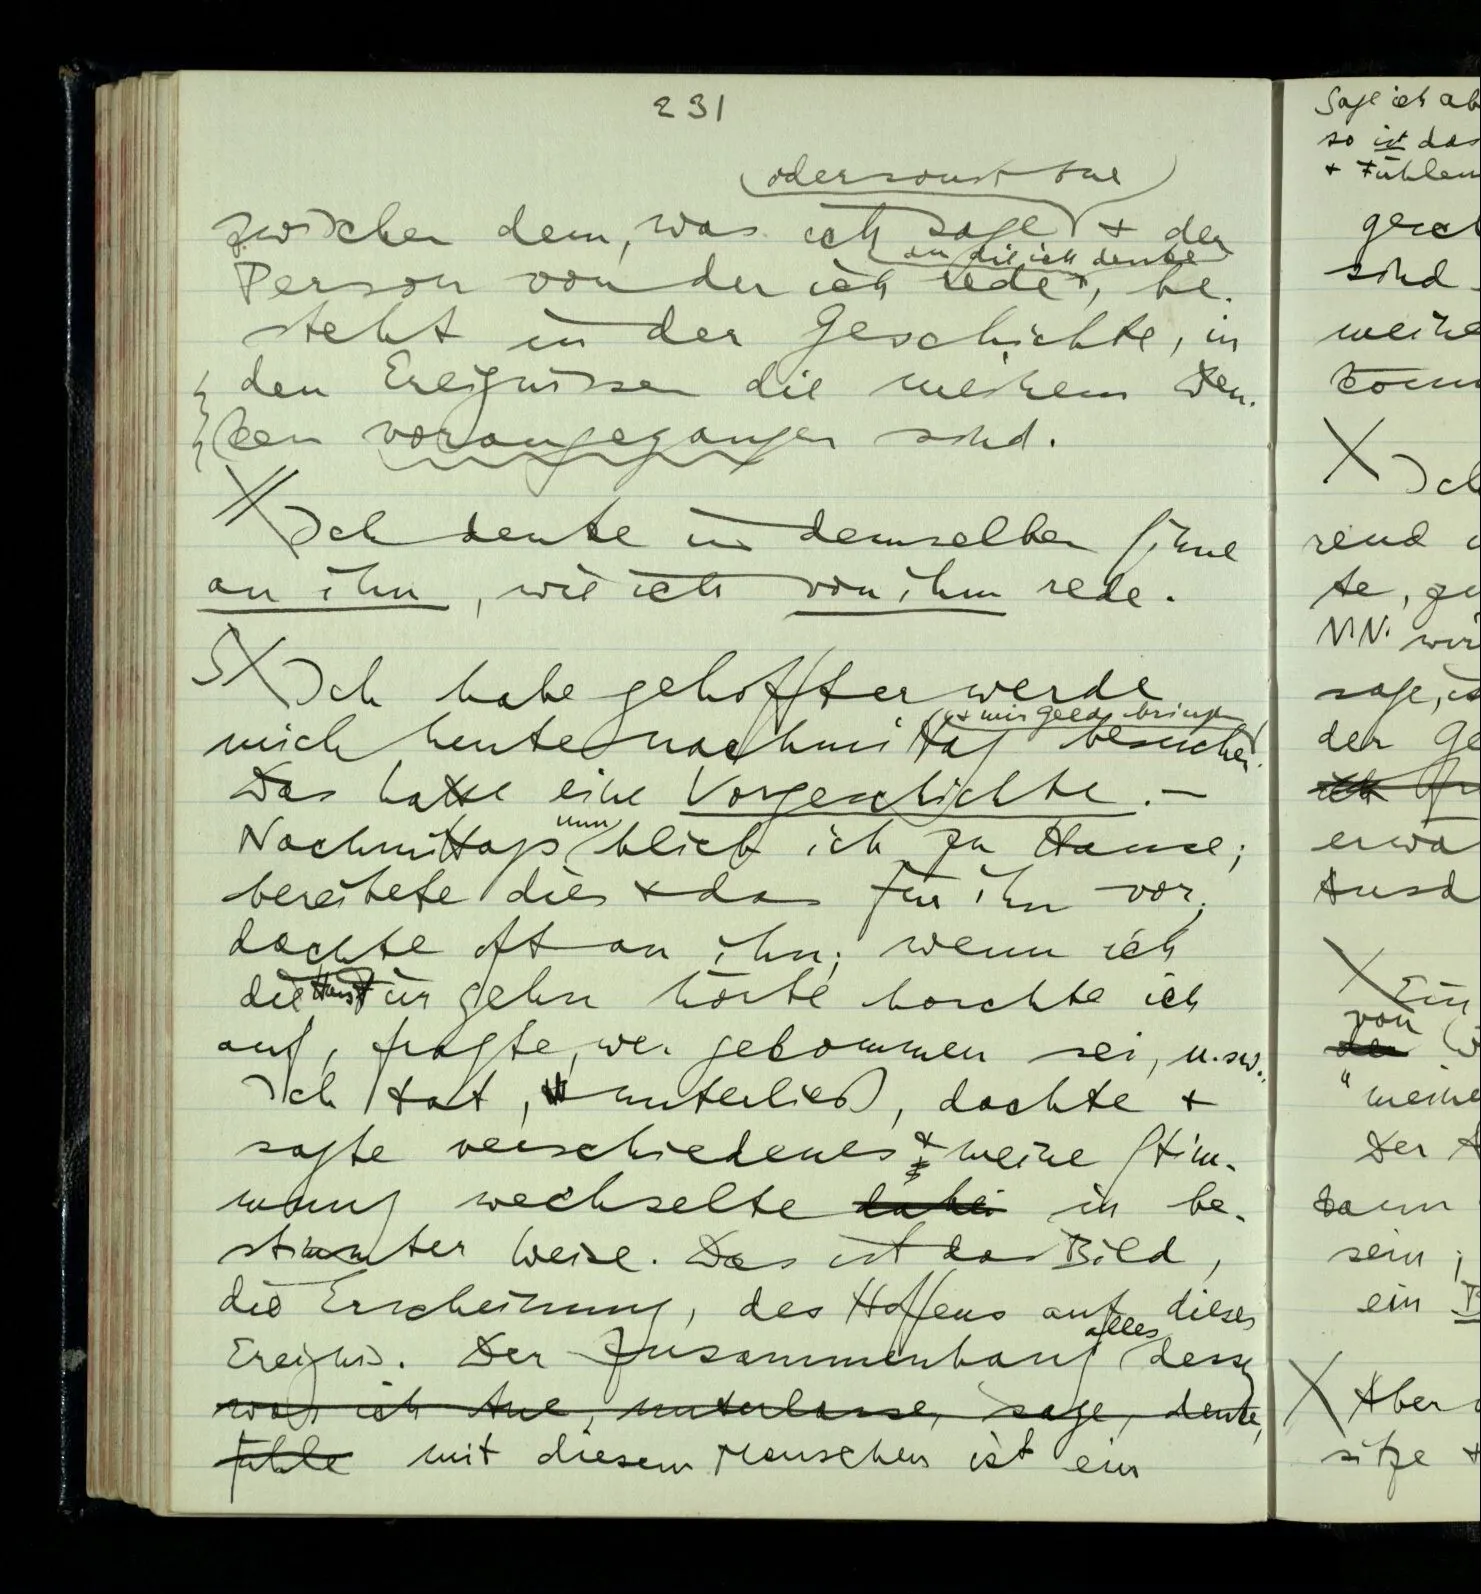 231
oder sonst tue
zwischen dem, was ich sage + der
an die ich denke
Person von der ich rede, be-
steht in der Geschichte, in
den Ereignissen die meinem Den-
ken vorangegangen sind.
Ich denke in demselben Sinne
an ihn, wie ich von ihm rede.
S X Ich habe gehofft er werde
+ mir Geld bringen
mich heute nachmittag besuchen.
Das hatte eine Vorgeschichte. –
nun
Nachmittags blieb ich zu Hause;
bereitete dies + das für ihn vor,
dachte oft an ihn; wenn ich
die Haustür gehn hörte horchte ich
auf, fragte, wer gekommen sei, u.sw..
Ich tat, unterließ, dachte +
sagte verschiedenes + meine Stim-
mung wechselte dabei in be-
stimmter Weise. Das ist das Bild,
die Erscheinung, des Hoffens auf dieses
alles
Ereignis. Der Zusammenhang dessen
was ich tue, unterlasse, sage, denke,
fühle mit diesem Menschen ist ein
Sage ich ab
so ist das
+ Fühlen
gesch
sind
meine
komm
X Ich
rend
te, zu
N.N. wir
sage, is
der Ge
ich
erwa
Ausd
X Ein
von
der
"meine
Der
kann
sein;
ein B
X Aber
sitze +